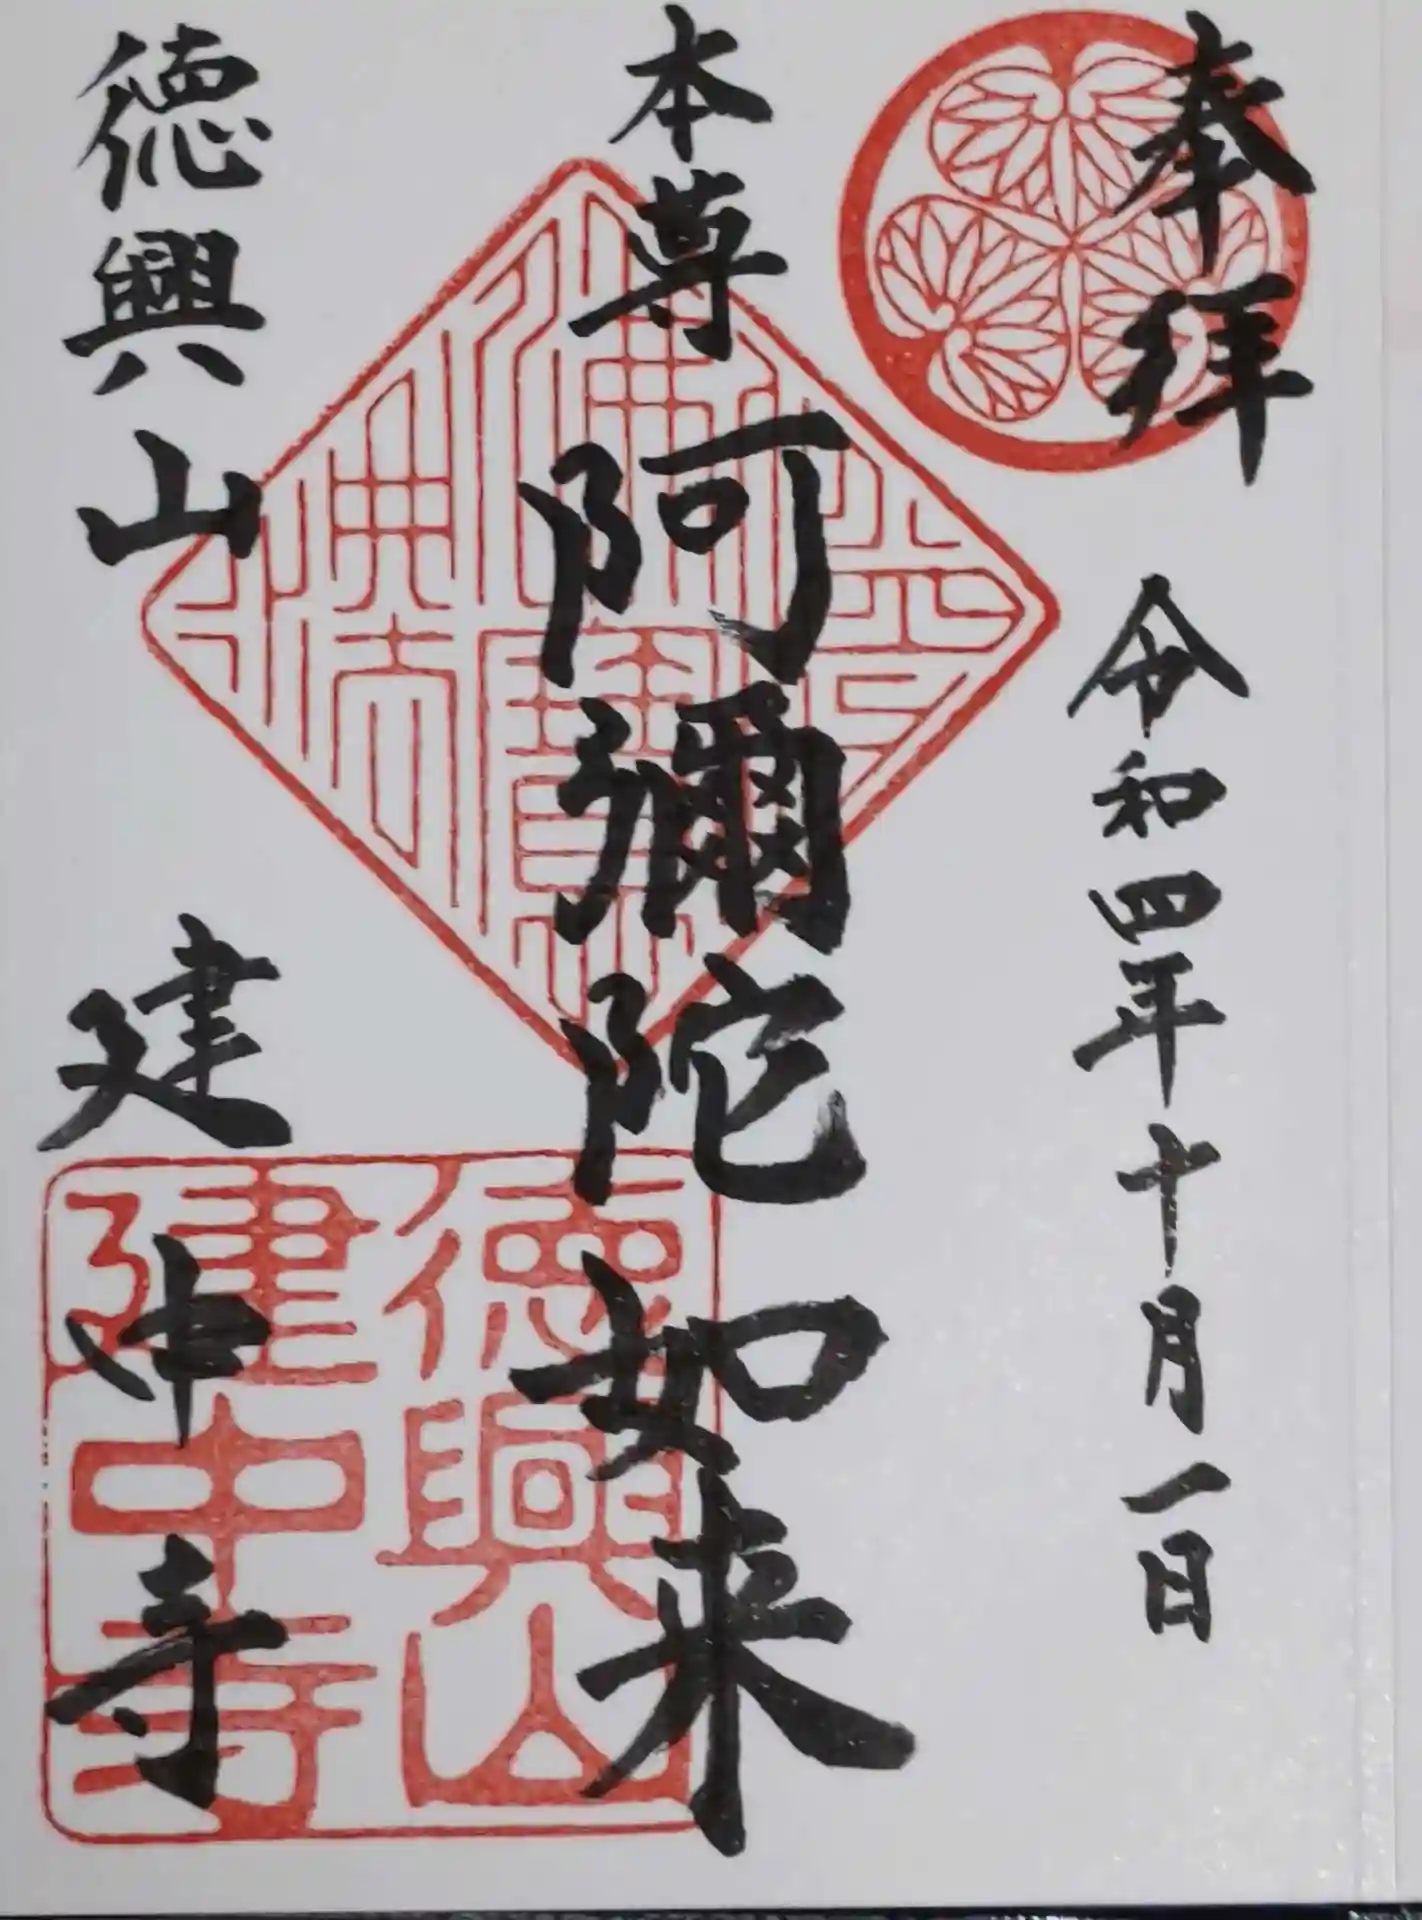 奉拝
令和四年十月一日
本尊 阿彌陀如来
徳興山 建中寺
佛法僧寶
徳興山
建中寺